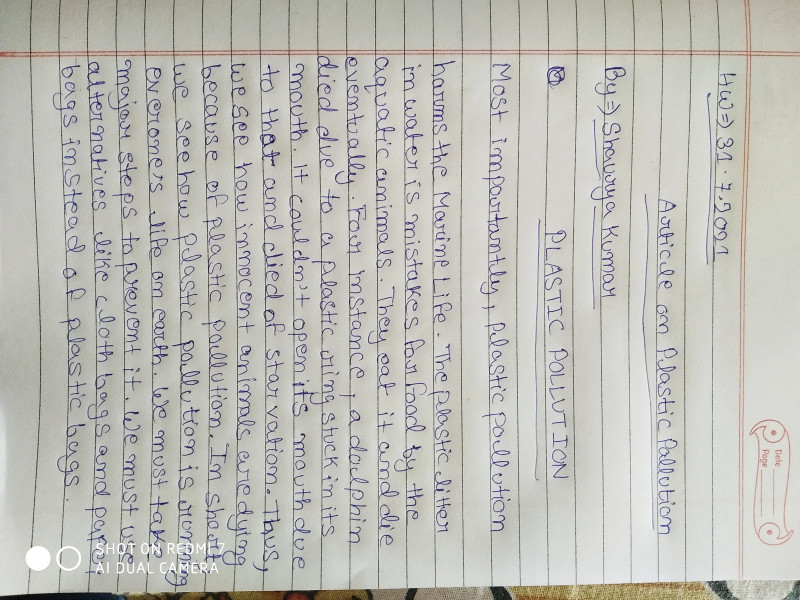 Date
Page
HW⇒ 31.7.2021
Article on Plastic Pollution
By⇒ Shaurya Kumar
PLASTIC POLLUTION
Most importantly, plastic pollution
harms the Marine Life. The plastic liter
in water is mistakes for food by the
aquatic animals. They eat it and die
eventually. Four instance, a dolphin
died due to a plastic ring stuck in its
mouth. It couldn't open its mouth due
to that and died of starvation. Thus,
we see how innocent animals are dying
because of plastic pollution. In short
we see how plastic pollution is ruining
everone's life on earth. We must take
major steps to prevent it. We must use
alternatives like cloth bags and paper
bags instead of plastic bags.
SHOT ON REDMI 7
AI DUAL CAMERA